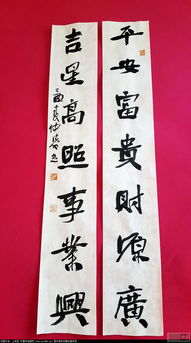 平安富貴財源廣
吉星高照事業興